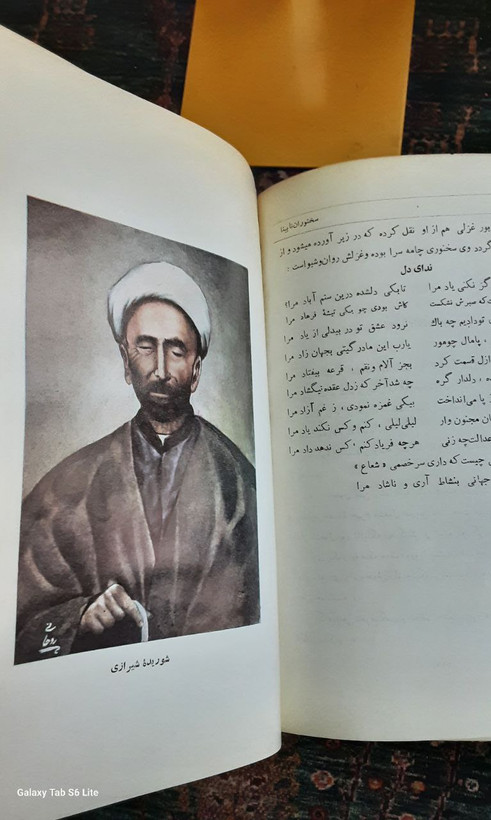 سخنوران نابینا
بور غزلی هم از او نقل کرده که در زیر آورده میشود و از
گردد وی سخنوری چامه سرا بوده وغزلش روان‌وشیواست :
ندای دل
گز نکنی یاد مرا تا بکی دلشده درین ستم آباد مرا؟
که صبرش نشکست کاش بودی چو یکی تیشهٔ فرهاد مرا
تودادیم چه باك نرود عشق تو در بیدلی از یاد مرا
، پامال چومور یارب این مادر گیتی بجهان زاد مرا
ازل قسمت کرد بجز آلام ونقم ، قرعه بیفتاد مرا
، دلدار گره چه شد آخر که زدل عقده نگشاد مرا
پا می‌انداخت بیکی غمزه نمودی ، ز غم آزاد مرا
مجنون وار لیلی‌لیلی ، کنم و کس نکند یاد مرا
عدالت‌چه زنی هر چه فریاد کنم ، کس ندهد داد مرا
چیست که داری سرخصمی « شعاع »
جهانی بنشاط آری و ناشاد مرا
شوریدهٔ شیرازی
Galaxy Tab S6 Lite